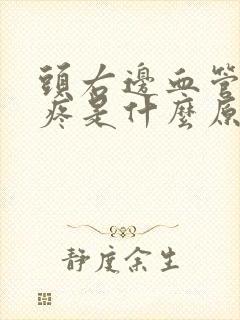 頭右邊血管
疼是什麼原
静度余生